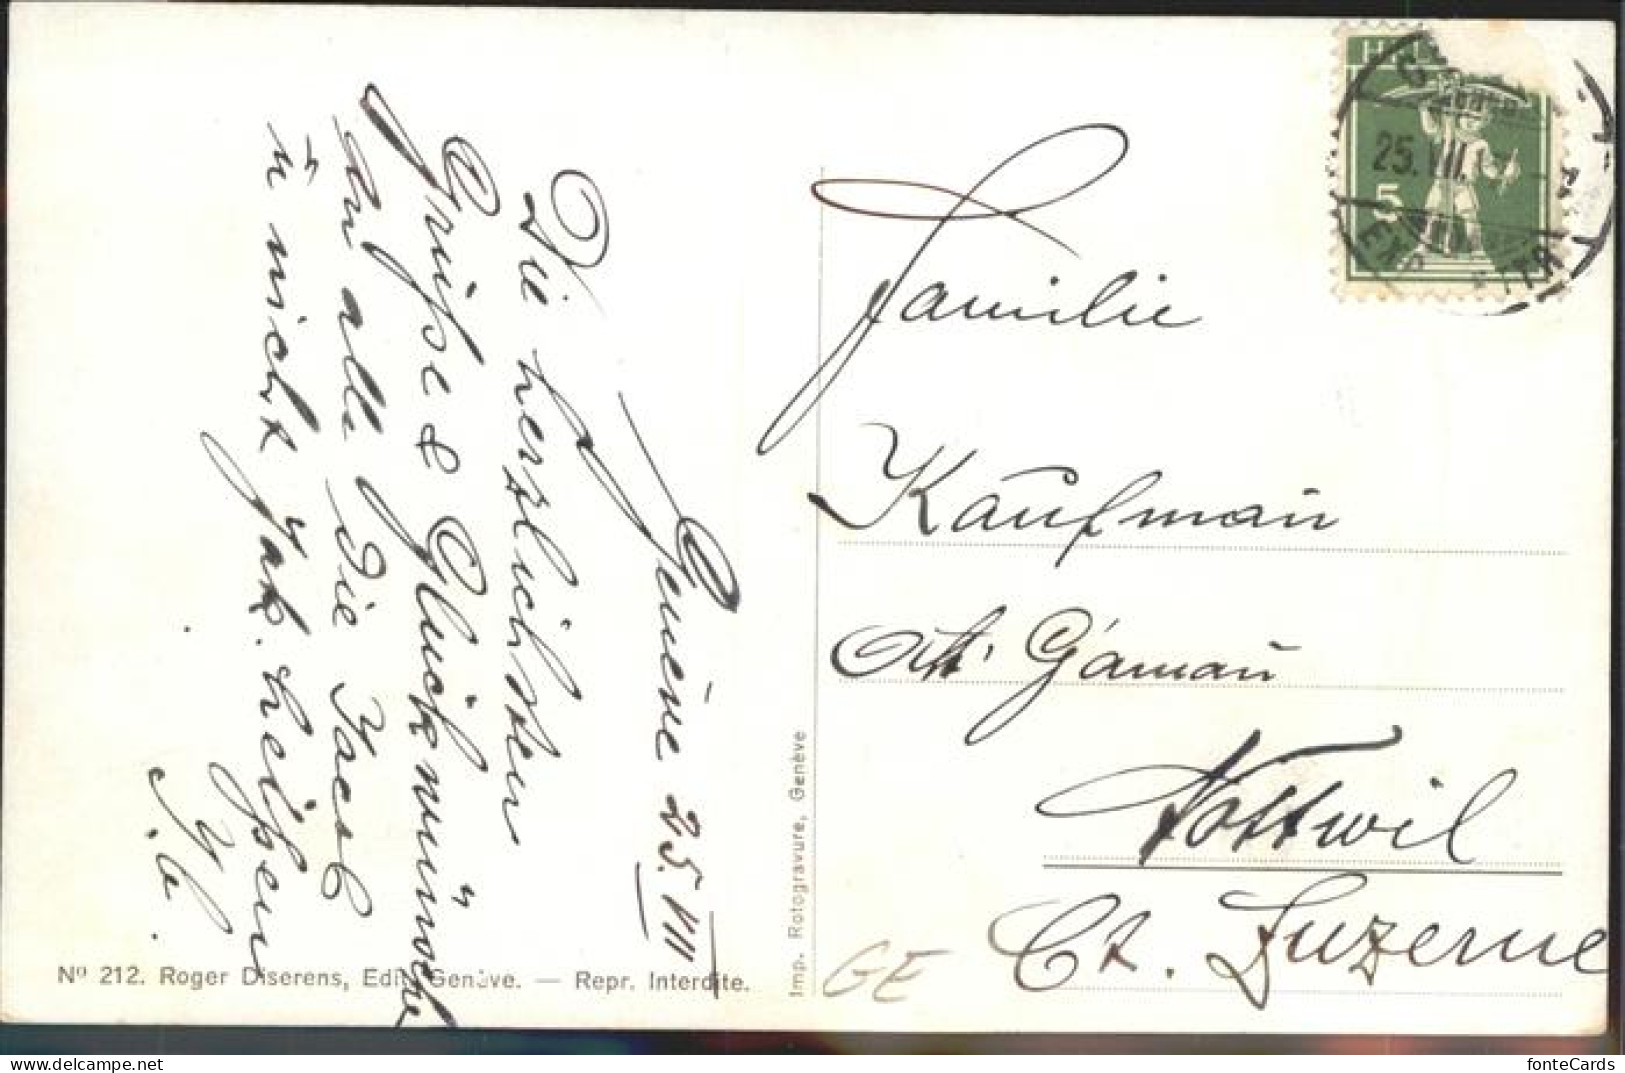 Genève 25. VIII
Die herzlichsten
Grüße & Glückwünsche
an alle die Jacob
ü nicht Jak. heißen
Familie
Kaufmaũ
Gámaũ
Nottwil
Ct. Luzerne
GE
HEL
25. VII.
5
Nº 212. Roger Diserens, Edit. Genève. — Repr. Interdite.
Imp. Rotogravure, Genève
fonteCards